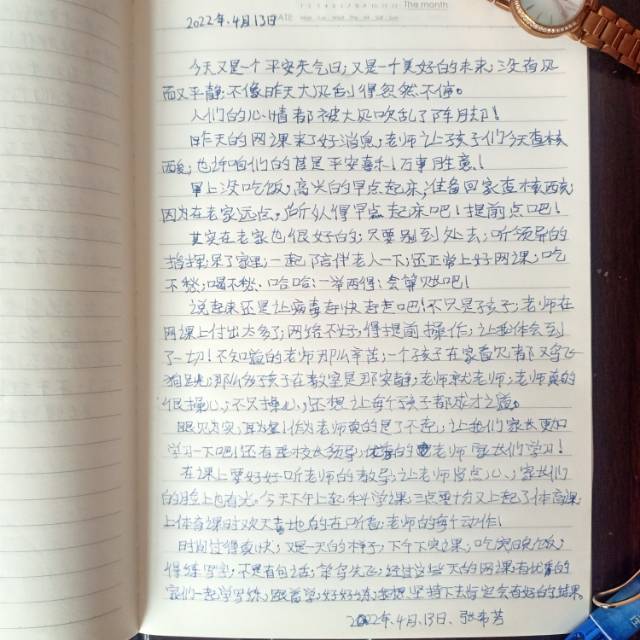 The month
2022年.4月13日
今天又是一个平安天气日,又是一个美好的未来,没有风
而又平静,不像昨天大风刮得忽然不停。
人们的心情都被大风吹乱了阵脚却!
昨天的网课来了好消息,老师让孩子们今天查核
酸,也祈响们的甚是平安喜乐!万事胜意!
早上没吃饭,高兴的早点起床,准备回家查核酸,
因为在老家远点,所以得早点起床吧!提前点吧!
其实在老家也很好的,只要别到处去,听领导的
指挥呆了家里,一起了陪伴老人一下,还正常上好网课,吃
不愁,喝不愁、哈哈一举两得,会算账吧!
说起来还是让病毒赶快走吧!不只是孩子,老师在
网课上付出太多了,网络不好,得提前操作,让我体会到
了一切!不知道的老师那么辛苦,一个孩子在家
那么多孩子在教室是那安静,老师就老师,老师真的
很操心,不只操心,还想让每个孩子都成才之道。
眼见为实,耳为虚!作为老师真的是了不起,让我们家长更加
学习一下吧!还有是校长领导,优秀的老师 家长们学习!
在课上要好好听老师的教导,让老师省点心,家长们
的脸上也有光,今天下午上起科学课,三点里十分又上起了体育课,
上体育课时欢天喜地的在听着老师的每个动作!
时间过得真快,又是一天的样子,下午下完课,吃完晚饭,
得练字,不是有句话,笨鸟先飞,经过这些天的网课有优秀的
家长一起学习练,跟着学,好好练,我想坚持下去肯定会有好的结果
2022年.4月13日、张布芳